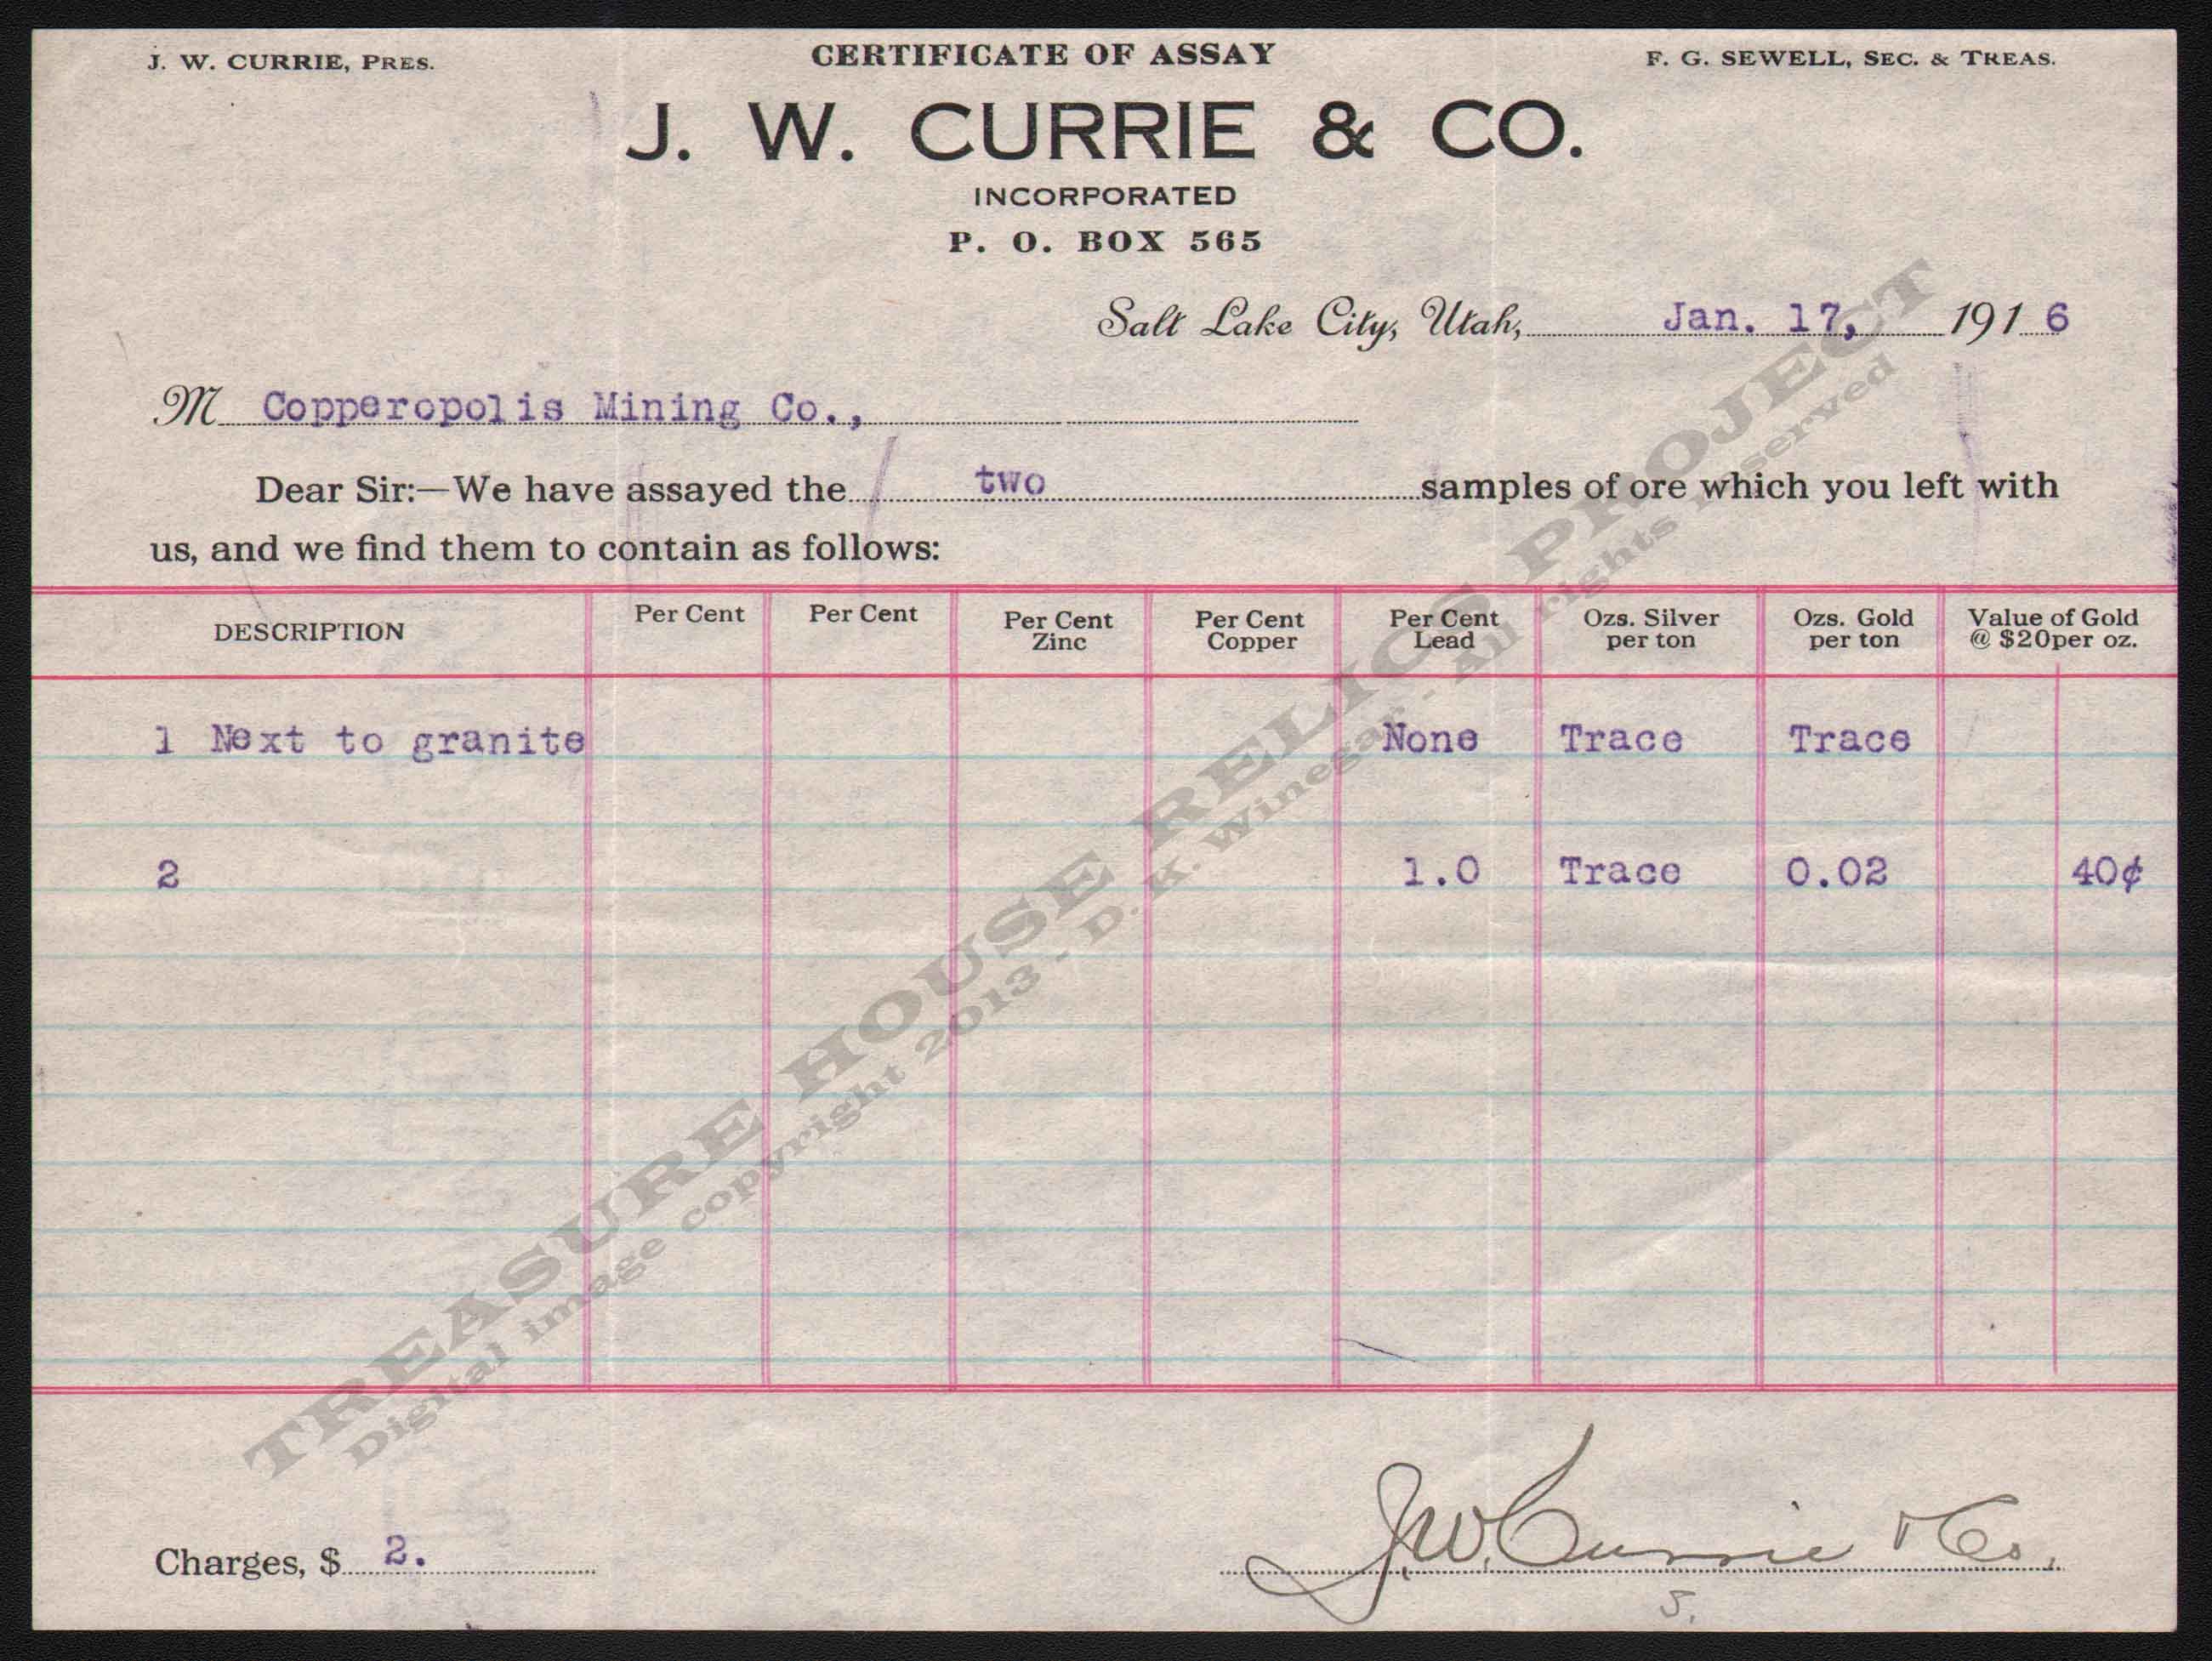 J. W. CURRIE, PRES.
CERTIFICATE OF ASSAY
F. G. SEWELL, SEC. & TREAS.
J. W. CURRIE & CO.
INCORPORATED
P. O. BOX 565
Salt Lake City, Utah, Jan. 17, 1916
M Copperopolis Mining Co.,
Dear Sir:—We have assayed the two samples of ore which you left with
us, and we find them to contain as follows:
DESCRIPTION Per Cent Per Cent Per Cent Zinc Per Cent Copper Per Cent Lead Ozs. Silver per ton Ozs. Gold per ton Value of Gold @ $20 per oz.
1 Next to granite None Trace Trace
2 1.0 Trace 0.02 40¢
Charges, $ 2.
J. W. Currie & Co.
S.
TREASURE HOUSE RELICS PROJECT
Digital image copyright 2013 - D. K. Winegar - All rights reserved